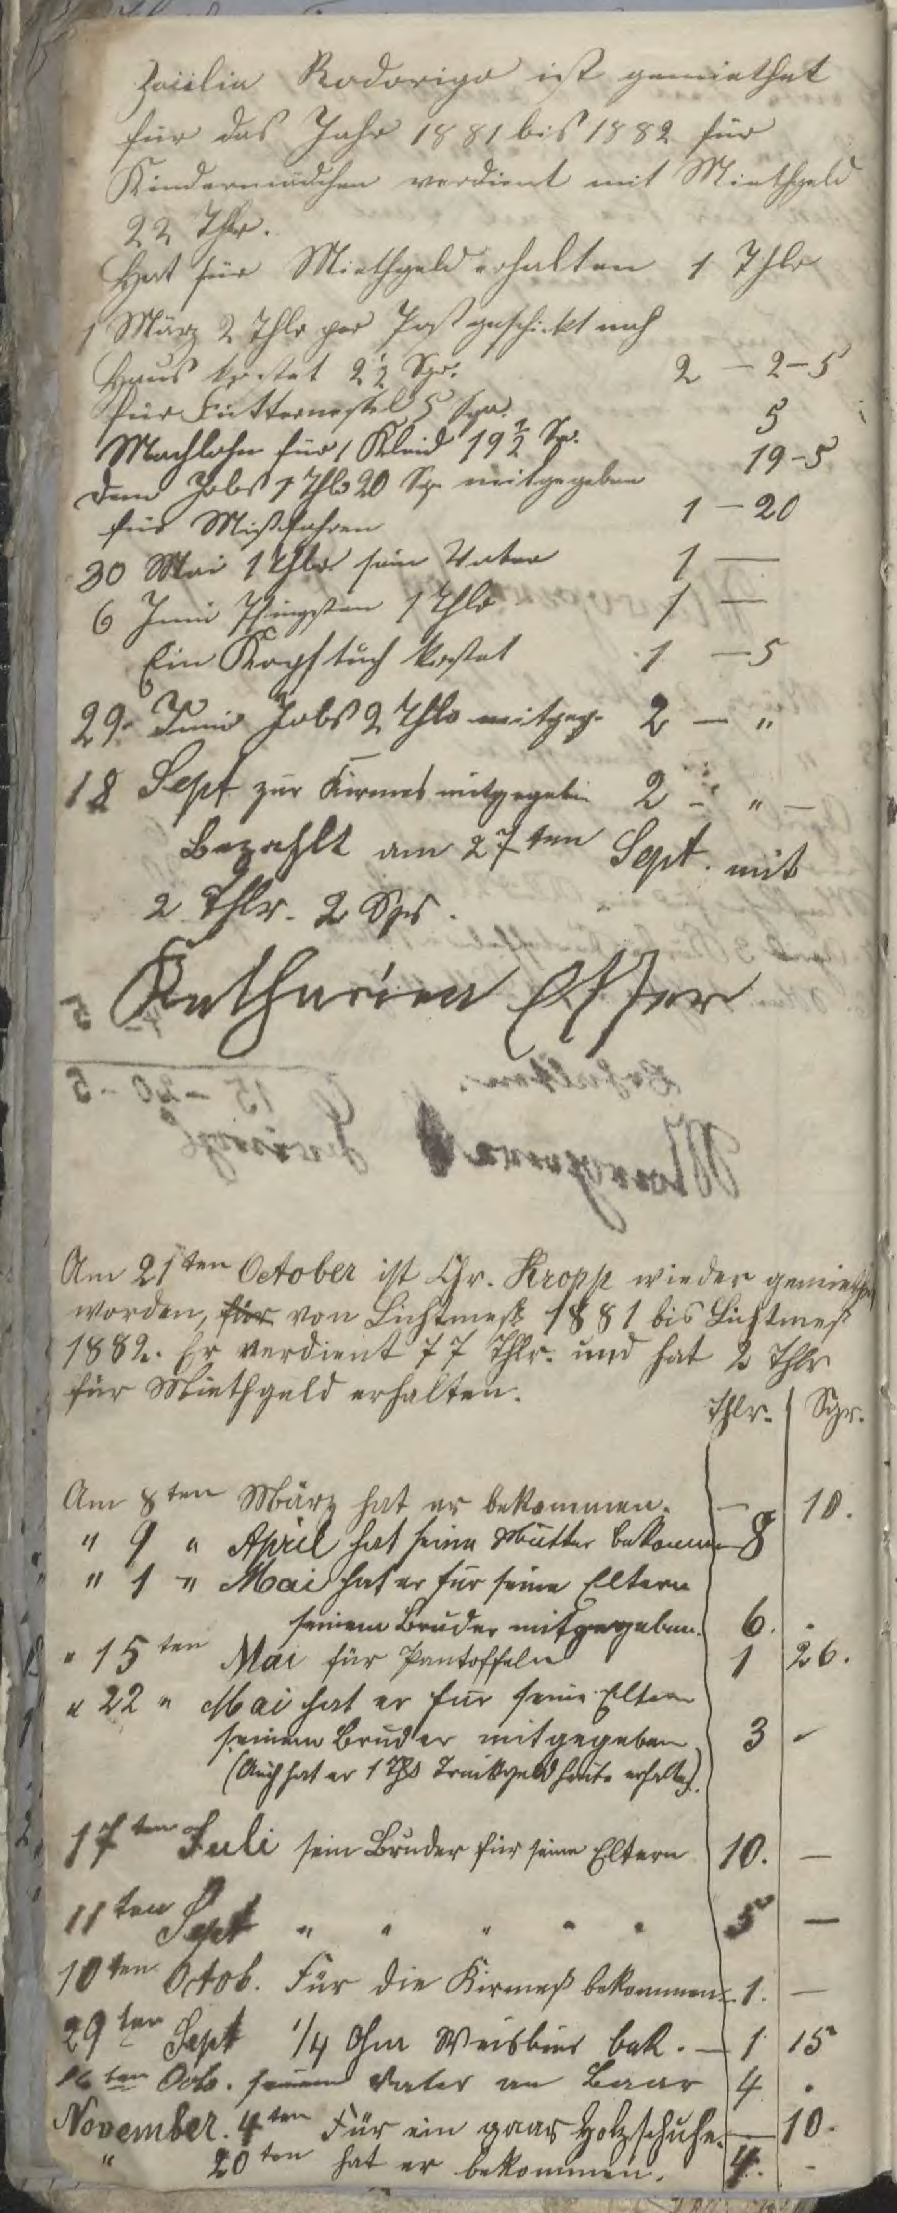 Zäcilia Rodorigo ist gemiethet
für das Jahr 1881 bis 1882 für
Kindermädchen verdient mit Miethgeld
22 Thlr.
Hat für Miethgeld erhalten 1 Thlr
1 März 2 Thlr per Post geschickt nach
Haus kostet 2½ Sgr. 2 – 2 – 5
für 5 Sgr. 5
Machlohn für 1 Kleid 19½ Sgr. 19 – 5
dem Jobs 1 Thlr 20 Sgr mitgegeben 1 – 20
für
30 Mai 1 Thlr sein Vater 1 —
6 Juni Pfingsten 1 Thlr 1 —
Ein Kopftuch kostet 1 – 5
29. Juni Jobs 2 Thlr mitgeg. 2 – "
18 Sept zur Kirmes mitgegeben 2 – " –
Bezahlt am 27ten Sept. mit
2 Thlr. 2 Sgr.
Katharina Esser
Am 21ten October ist Chr. Kropp wieder gemieth
worden, für von Lichtmeß 1881 bis Lichtmeß
1882. Er verdient 77 Thlr. und hat 2 Thlr
für Miethgeld erhalten.
Thlr. Sgr.
Am 8ten März hat er bekommen. – 10.
" 9 " April hat seine Mutter bekommen 8
" 1 " Mai hat er für seine Eltern
seinem Bruder mitgegeben. 6. .
" 15ten Mai für Pantoffeln 1 26.
" 22 " Mai hat er für seine Eltern
seinem Bruder mitgegeben 3 –
(Auch hat er 1 Thlr Trinkgeld heute erhalten).
17ten Juli sein Bruder für seine Eltern 10. —
11ten Sept " " " " " 5 —
10ten Octob. Für die Kirmeß bekommen 1. —
29ten Sept ¼ Ohm Weisbier bek. – 1 15
16ten Octo. seinem Vater an Baar 4 .
November. 4ten Für ein paar Holzschuhe. — 10.
" 20ten hat er bekommen. 4. -